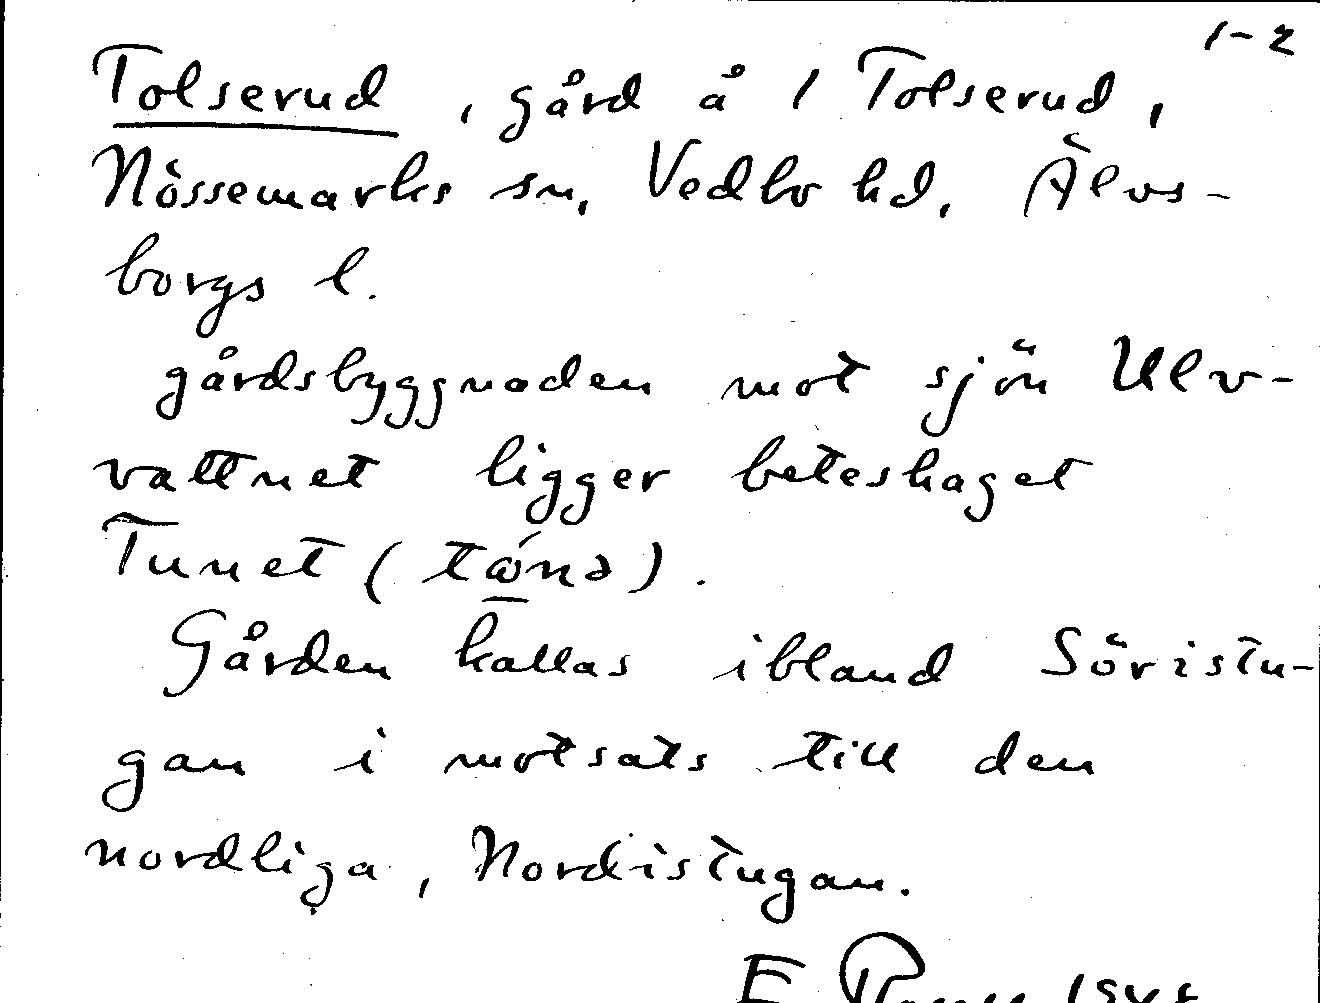 1-2
Tolserud, gård å 1 Tolserud,
Nössemarks sn, Vedbo hd, Älvs-
borgs l.
gårdsbyggnaden mot sjön Ulv-
vattnet ligger beteshaget
Tunet (tώ̱nə).
Gården kallas ibland Söristu-
gan i motsats till den
nordliga, Nordistugan.
E.